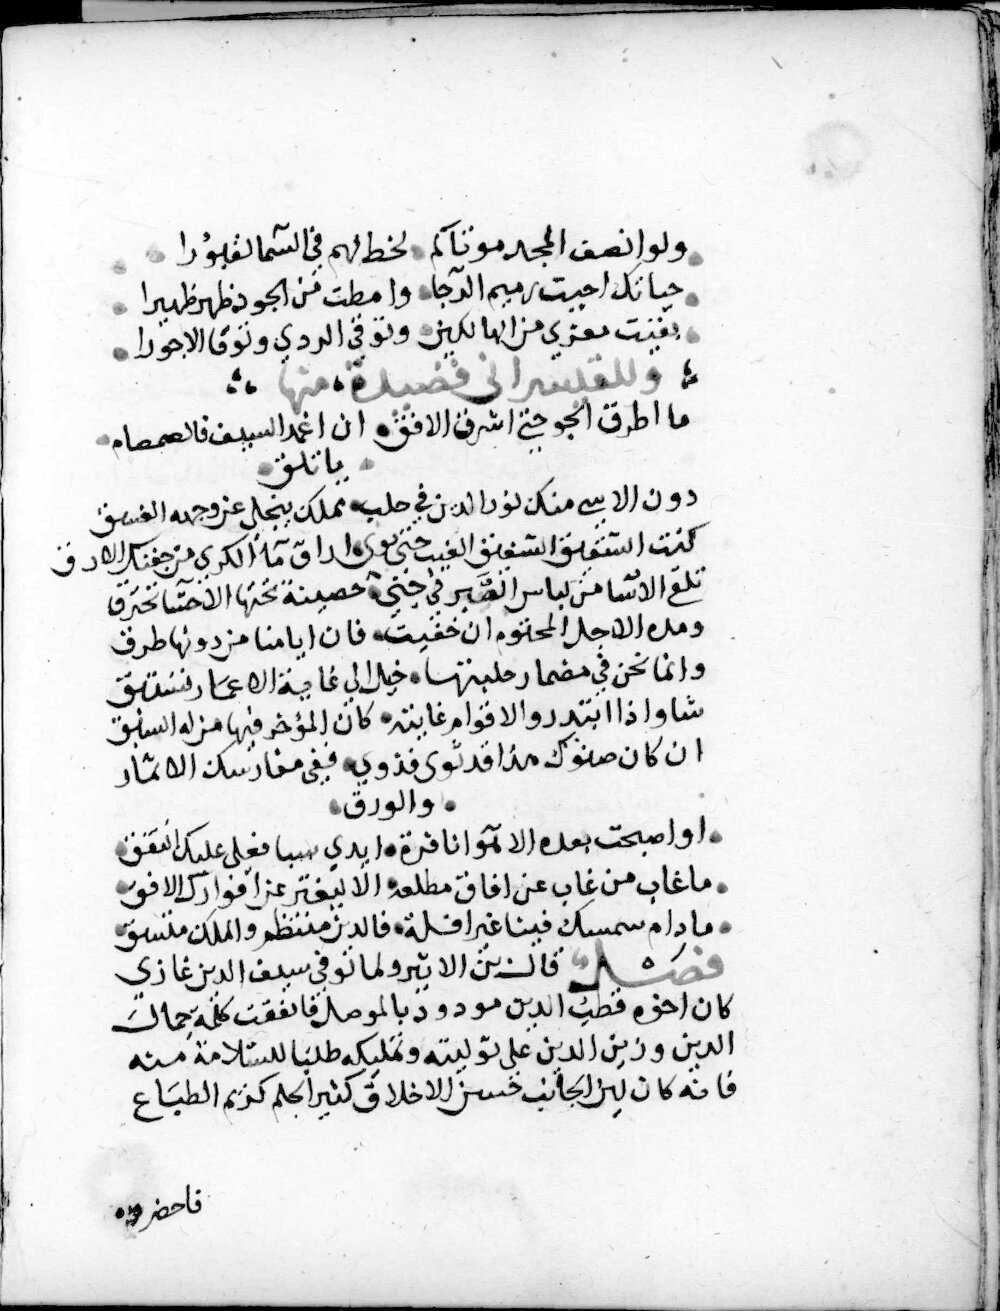 ولو انصف المجد موتاكم لخط لهم في السما لقبورا
حياتك احييت رميم الرجا وامطت من الجود ظهر ظهيرا
بقيت معزي من الهالكين وتوقي الردي وتوقا الاجورا
وللقيسراني قصيدة منها
ما اطرق الجو حتى اشرق الافق ان اغمد السيف فالصمصام
ياتلق
دون الاسي منك نور الدين في حلب بملك ينجلي عن وجهه الغسق
كنت الشقيق الشفيق الغيب حتى ثوى اراق ماء الكرى من جفنك الارق
تلقى الاسا من لباس الصبر في جنن حصينة تحتها الاحشا تحترق
ومده الاجل المحتوم ان خفيت فان ايامنا من دونها طرق
وانما نحن في مضمار حلبتها خيل الي غاية الاعمار تستبق
شاو اذا ابتدر والاقوام غايته كان المؤخر فيها من له السبق
ان كان صنوك هذا قد ثوى فذوي ففي مغارسك الاثمار
والورق
او اصبحت بعده الاهوا نافرة ايدي سبا فعلى عليك تتفق
ما غاب من غاب عن افاق مطلعه الا ليفتر عن انوارك الافق
ما دام شمسك فينا غير افلة فالدين منتظم والملك متسق
فصل قال ابن الاثير ولما توفي سيف الدين غازي
كان اخوه قطب الدين مودود بالموصل فاتفقت كلمة جمال
الدين وزين الدين على توليته وتمليكه طلبا للسلامة منه
فانه كان لين الجانب حسن الاخلاق كثير الحلم كريم الطباع
فاحضروه